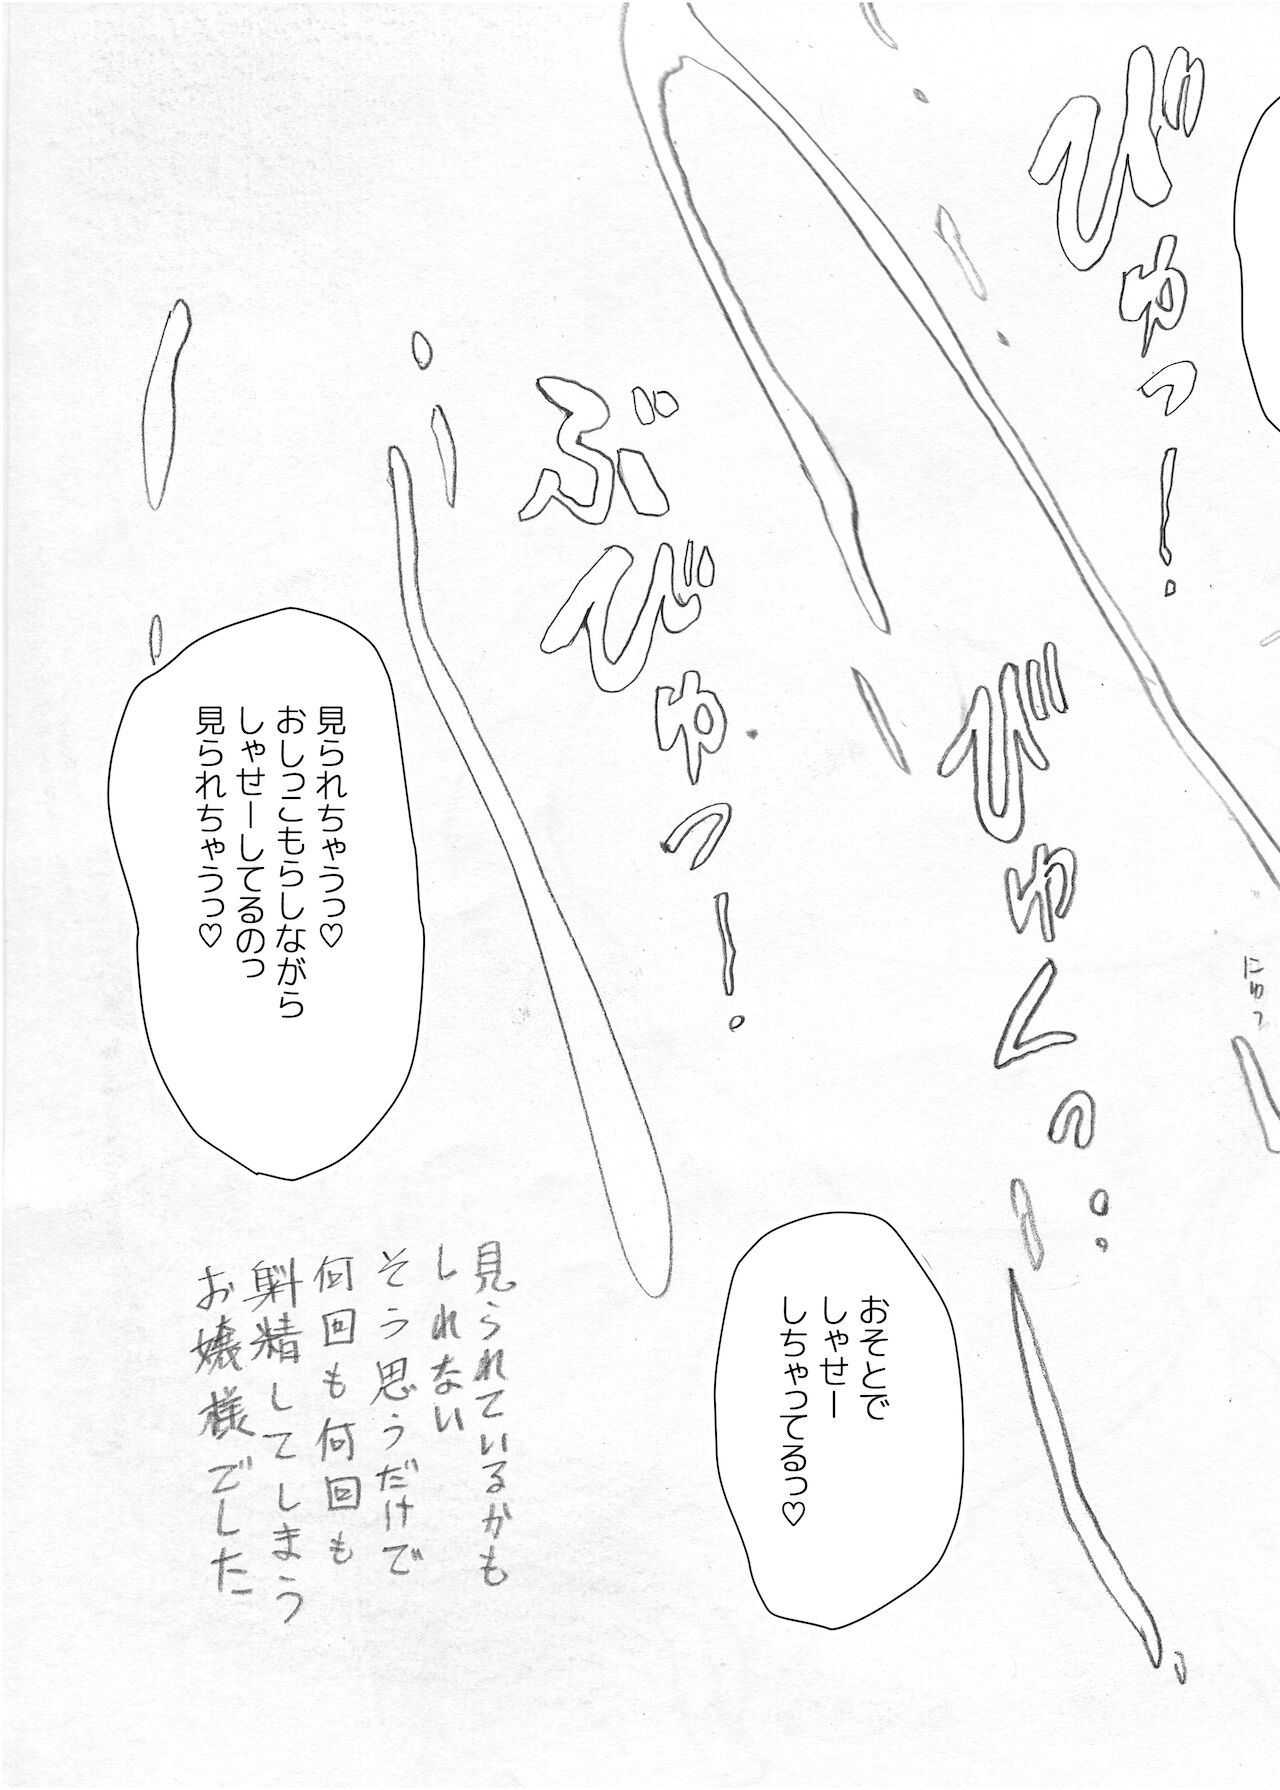 びゅっー
びゅくっ
ぶびゅっー
にゅっ
おそとで
しゃせー
しちゃってるっ♡
見られちゃうっ♡
おしっこもらしながら
しゃせーしてるのっ
見られちゃうっ♡
見られているかも
しれない
そう思うだけで
何回も何回も
射精してしまう
お嬢様でした